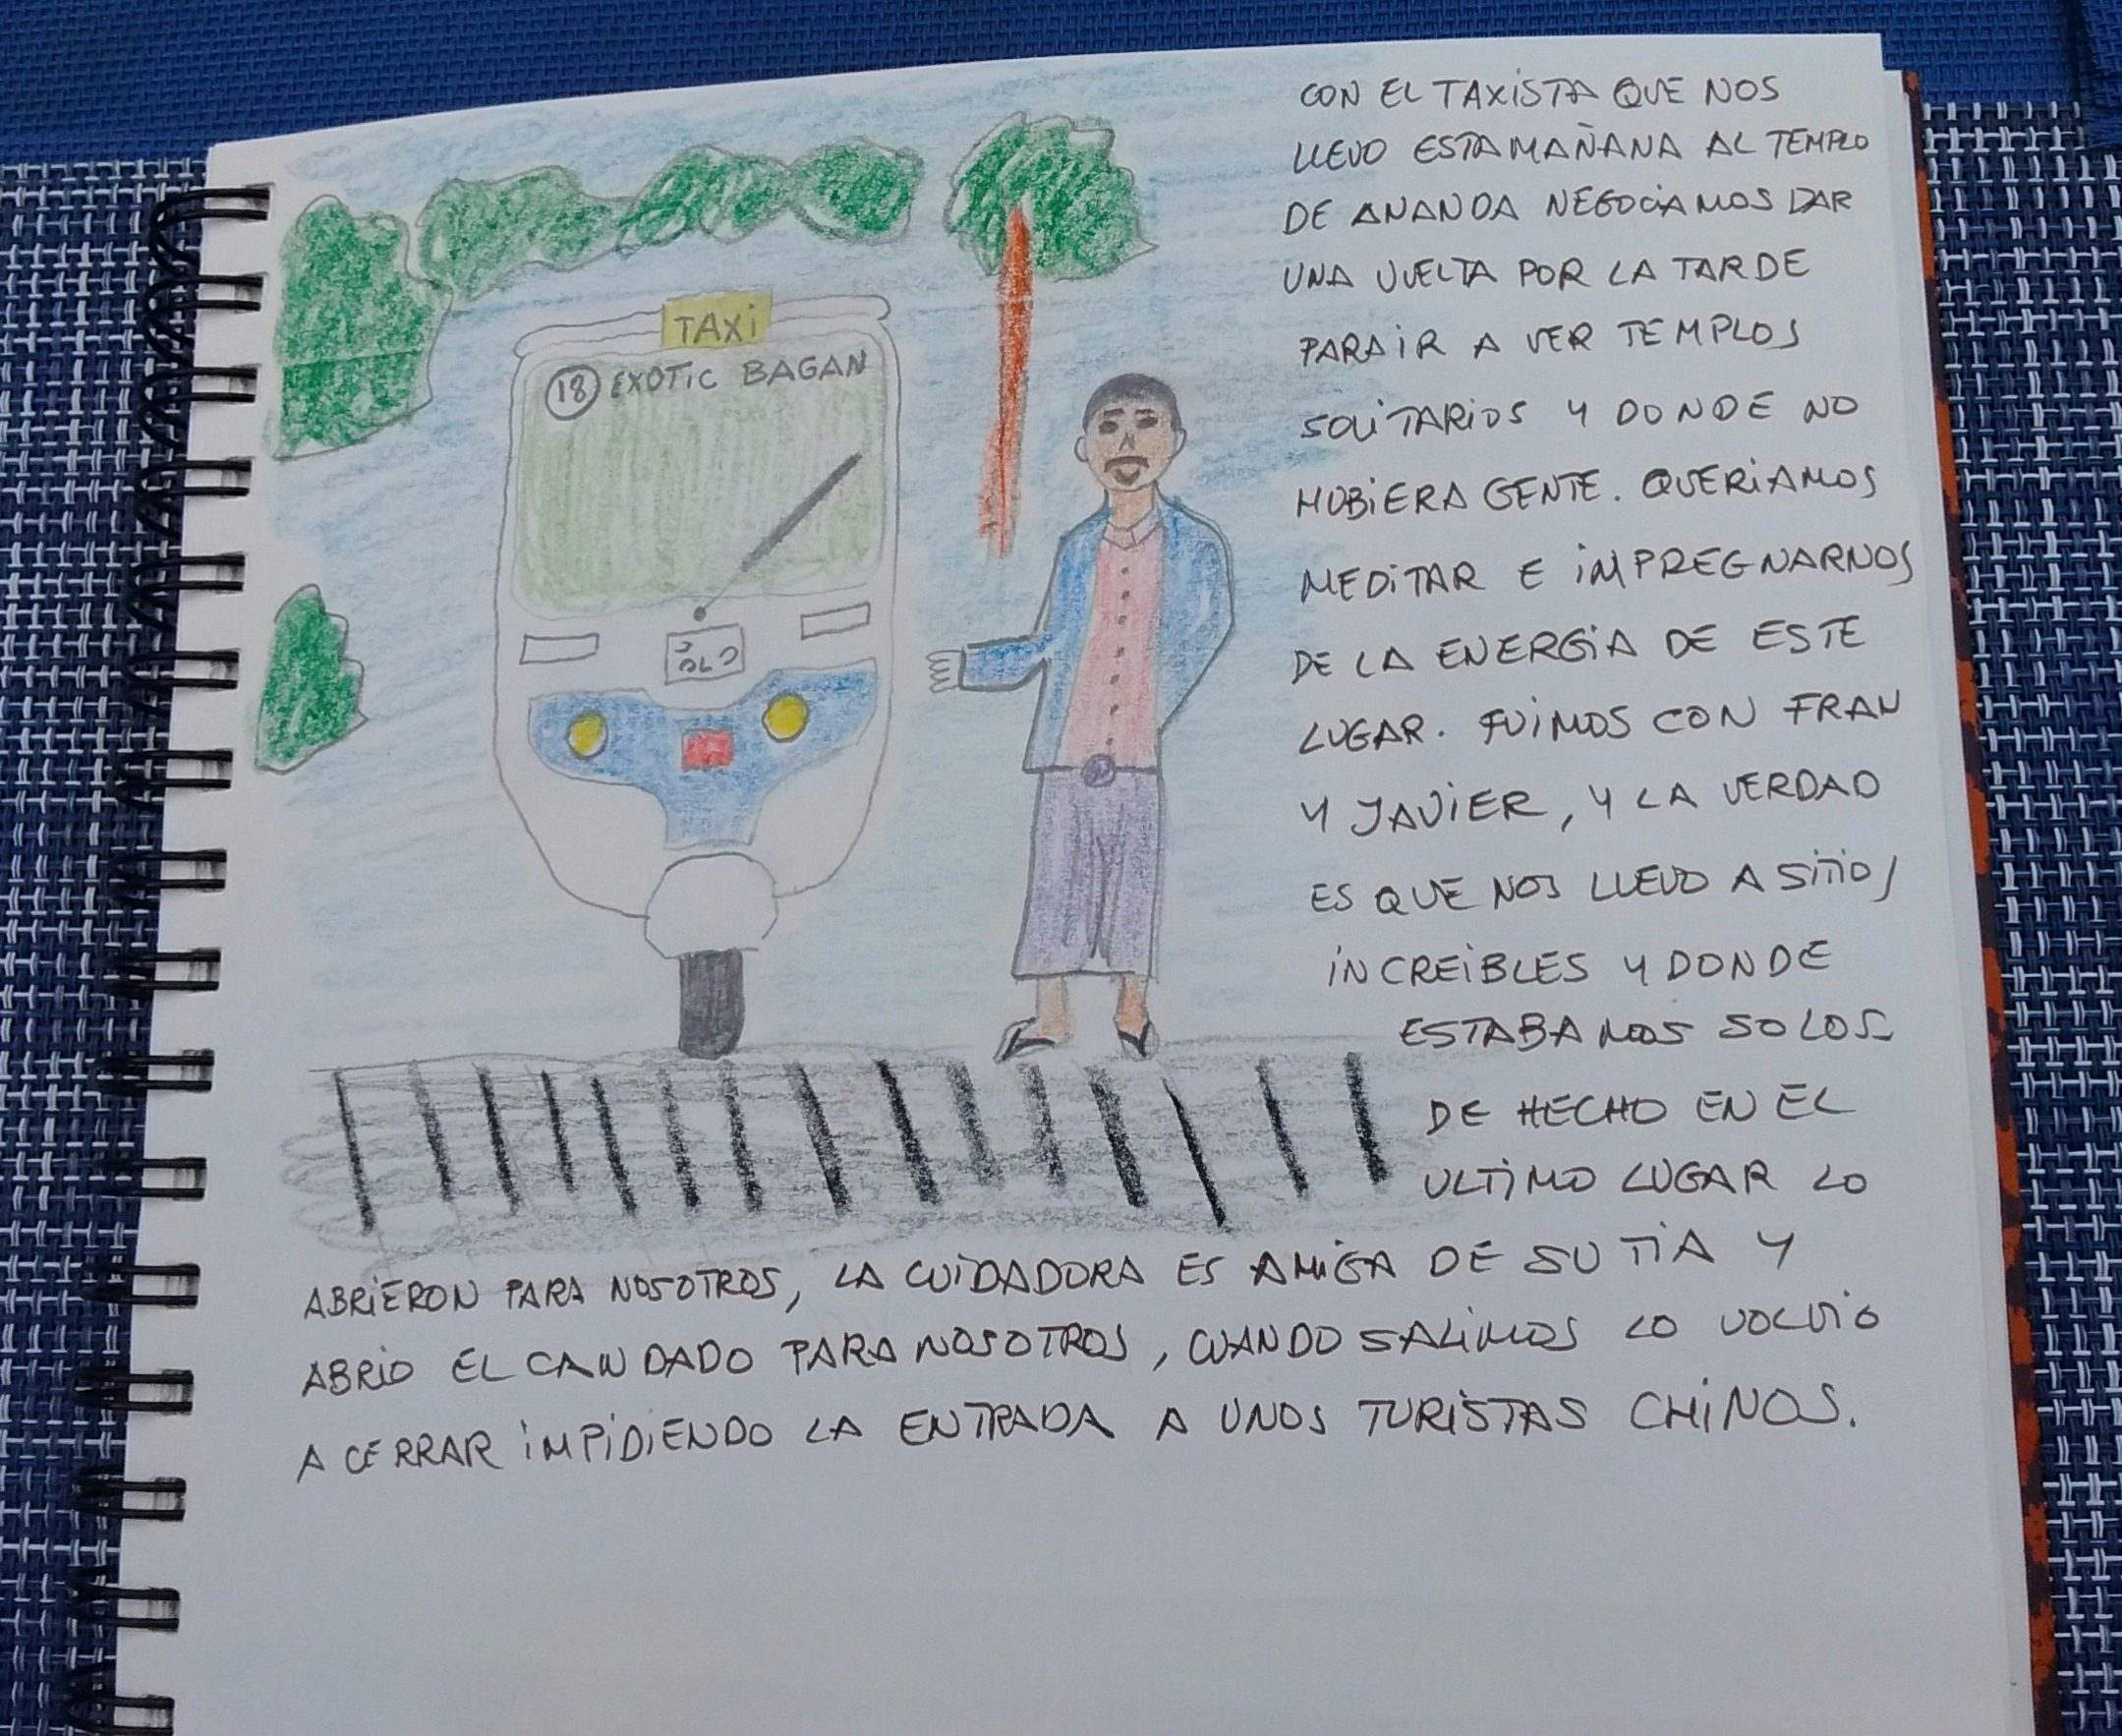 TAXi
18 EXOTiC BAGAN
CON EL TAXiSTA QUE NOS
LLEVO ESTA MAÑANA AL TEMPLO
DE ANANDA NEGOCiAMOS DAR
UNA VUELTA POR LA TARDE
PARA iR A VER TEMPLOS
SOLiTARiOS Y DONDE NO
HUBiERA GENTE. QUERiAMOS
MEDiTAR E iMPREGNARNOS
DE LA ENERGiA DE ESTE
LUGAR. FUiMOS CON FRAN
Y JAViER, Y LA VERDAD
ES QUE NOS LLEVO A SiTiOS
iNCREiBLES Y DONDE
ESTABAMOS SOLOS
DE HECHO EN EL
ULTiMO LUGAR LO
ABRiERON PARA NOSOTROS, LA CUiDADORA ES AMiGA DE SU TiA Y
ABRiO EL CANDADO PARA NOSOTROS, CUANDO SALiMOS LO VOLViO
A CERRAR iMPiDiENDO LA ENTRADA A UNOS TURiSTAS CHiNOS.